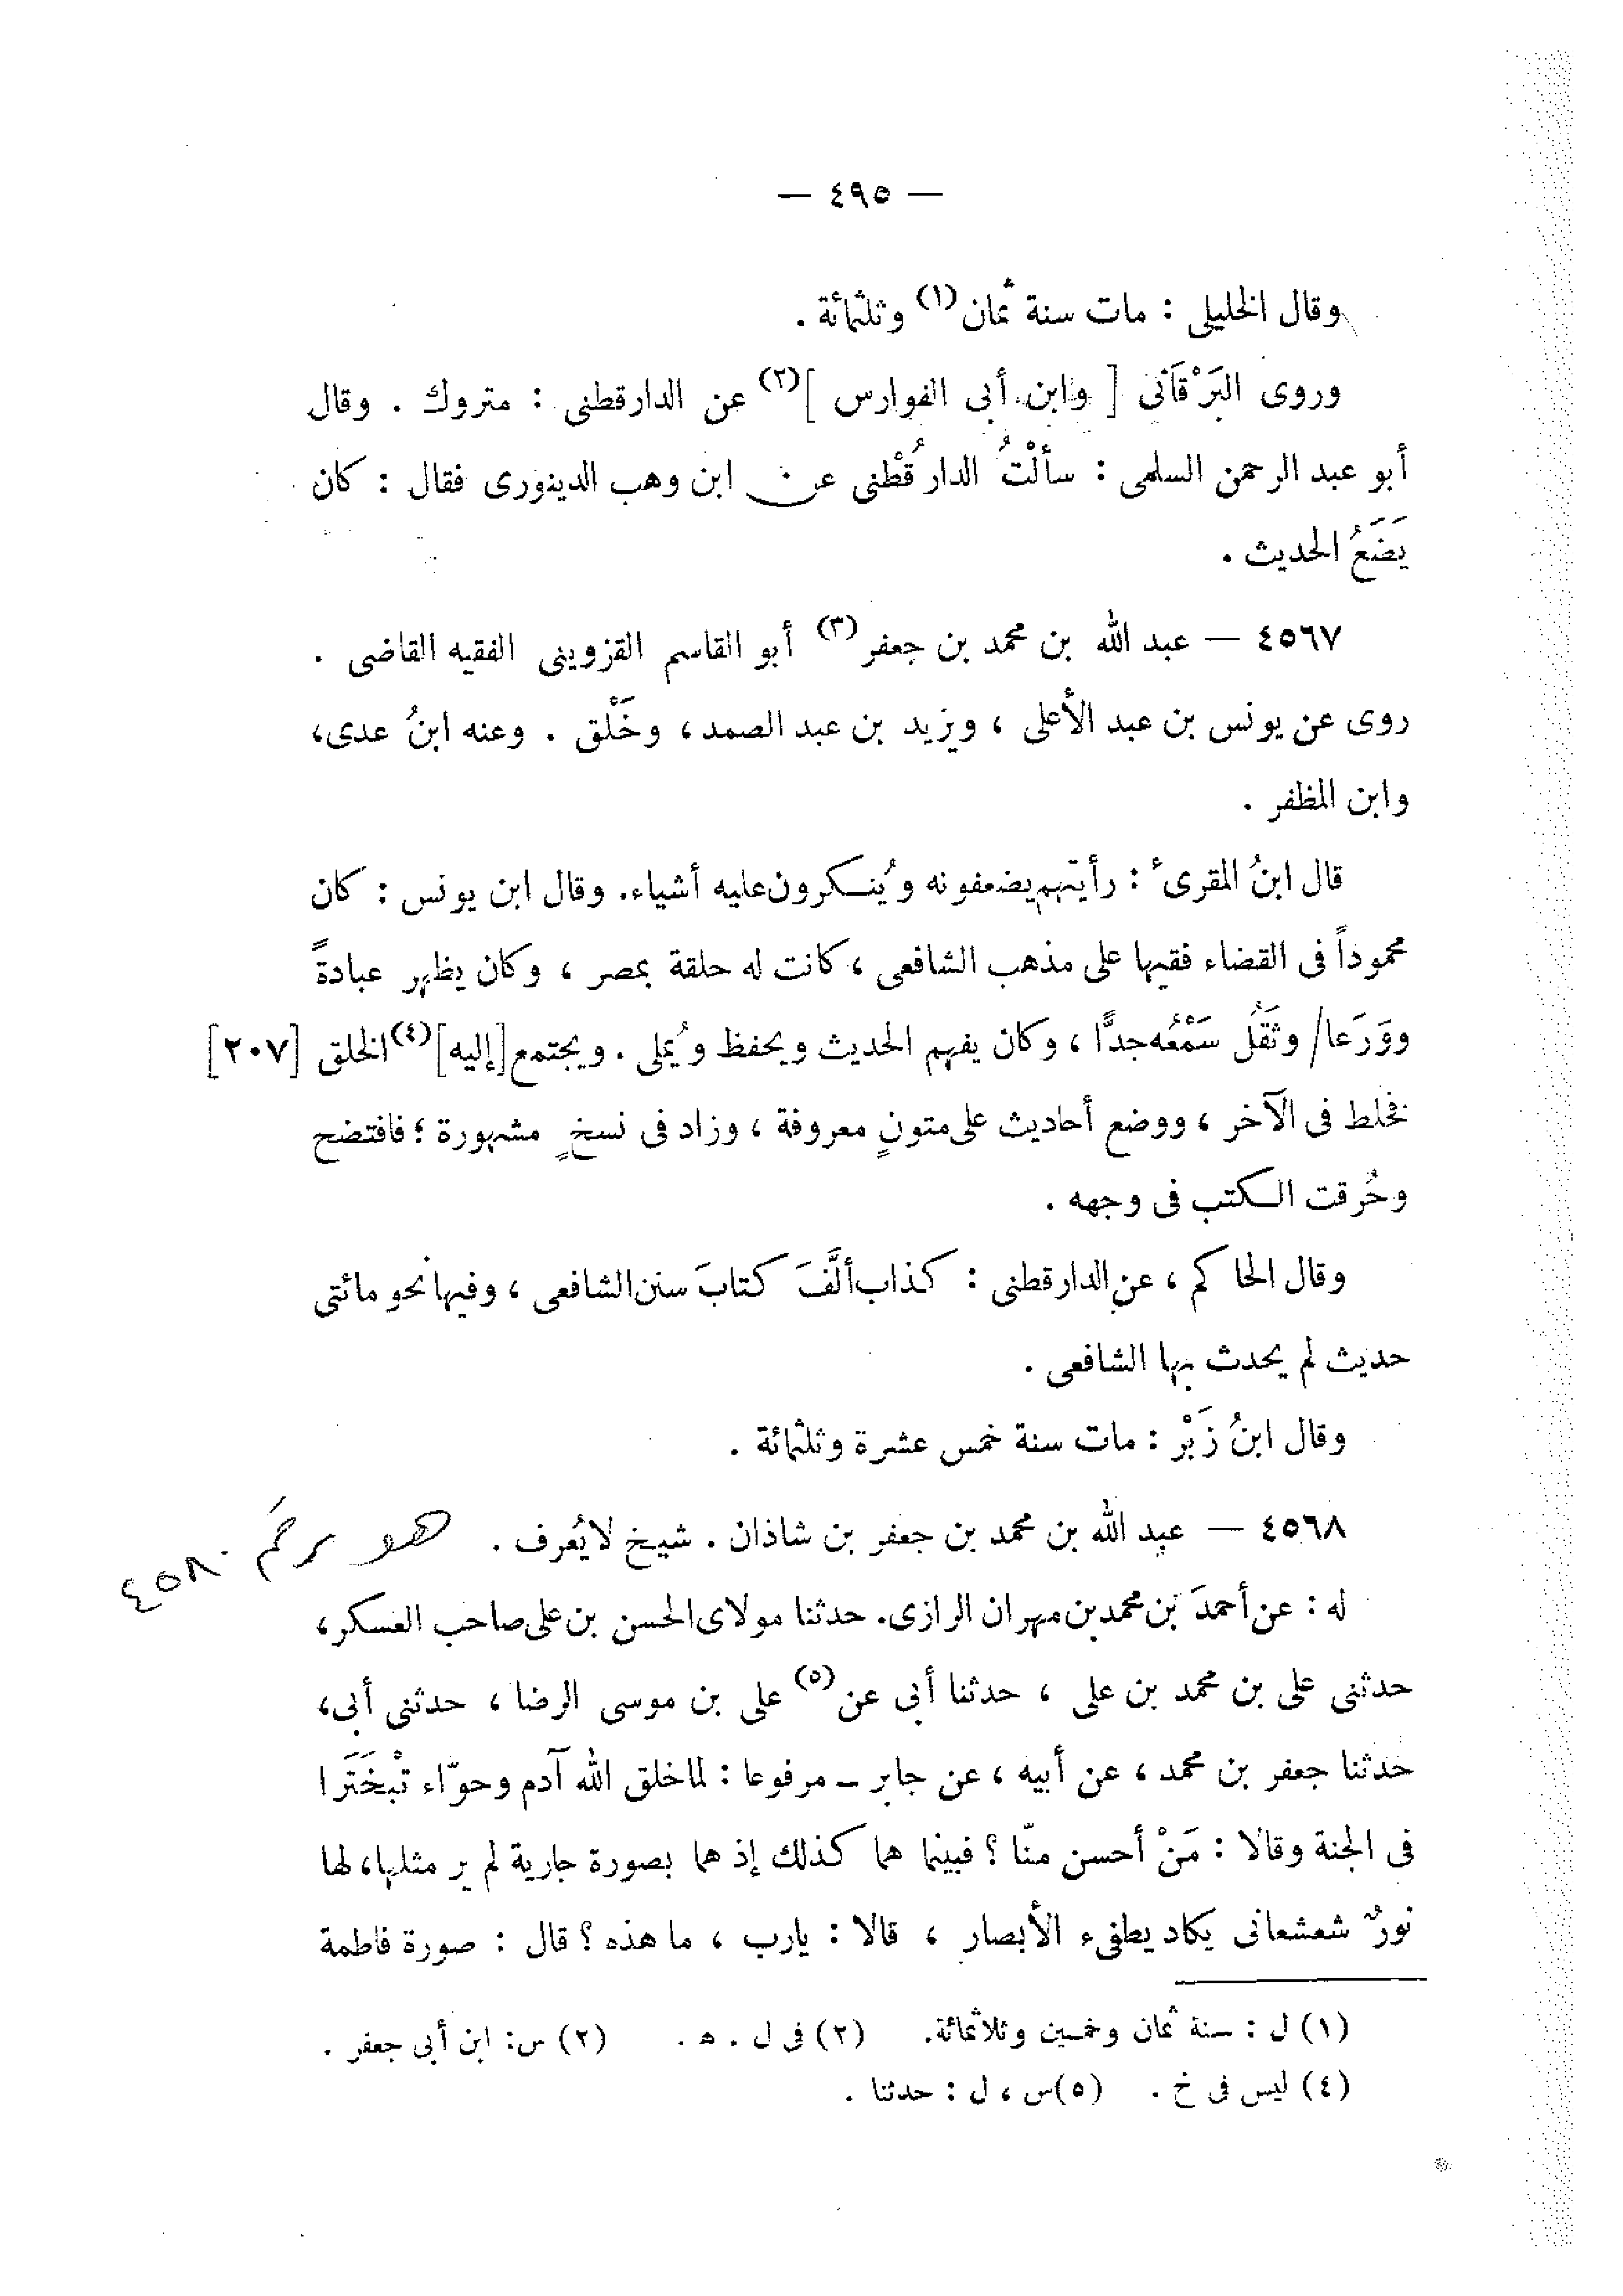 — ٤٩٥ —
وقال الخليلى : مات سنة ثمان(١) وثلثمائة .
وروى البَرْقَانى [ وابن أبى الفوارس ](٢) عن الدارقطنى : متروك . وقال
أبو عبد الرحمن السلمى : سألْتُ الدارقُطْنى عن ابن وهب الدينورى فقال : كان
يَضَعُ الحديث .
٤٥٦٧ — عبد الله بن محمد بن جعفر(٣) أبو القاسم القزوينى الفقيه القاضى .
روى عن يونس بن عبد الأعلى ، ويزيد بن عبد الصمد ، وخَلْق . وعنه ابنُ عدى،
وابن المظفر .
قال ابنُ المقرىء : رأيتهم يضعفونه ويُنكرون عليه أشياء. وقال ابن يونس : كان
محموداً فى القضاء فقيها على مذهب الشافعى ، كانت له حلقة بمصر ، وكان يظهر عبادةً
ووَرَعا/ وثَقُل سَمْعُه جدًّا ، وكان يفهم الحديث ويحفظ ويُملى . ويجتمع [إليه](٤) الخلق [٢٠٧]
فخلط فى الآخر ، ووضع أحاديث على متونٍ معروفة ، وزاد فى نسخٍ مشهورة ؛ فافتضح
وحُرقت الكتب فى وجهه .
وقال الحاكم ، عن الدارقطنى : كذاب ألَّفَ كتابَ سنن الشافعى ، وفيها نحو مائتى
حديث لم يحدث بها الشافعى .
وقال ابنُ زَبْر : مات سنة خمس عشرة وثلثمائة .
٤٥٦٨ — عبد الله بن محمد بن جعفر بن شاذان . شيخ لا يُعرف . هو برقم ٤٥٨٠
له : عن أحمدَ بن محمد بن مهران الرازى. حدثنا مولاى الحسن بن على صاحب العسكر،
حدثنى على بن محمد بن على ، حدثنا أبى عن(٥) على بن موسى الرضا ، حدثنى أبى،
حدثنا جعفر بن محمد ، عن أبيه ، عن جابر – مرفوعا : لما خلق الله آدم وحوّاء تبْخَتَرا
فى الجنة وقالا : مَنْ أحسن منّا ؟ فبينما هما كذلك إذ هما بصورة جارية لم ير مثلها، لها
نورٌ شعشعانى يكاد يطفىء الأبصار ، قالا : يارب ، ما هذه ؟ قال : صورة فاطمة
(١) ل : سنة ثمان وخمسين وثلاثمائة. (٢) فى ل . ه . (٢) س: ابن أبى جعفر .
(٤) ليس فى خ . (٥) س ، ل : حدثنا .